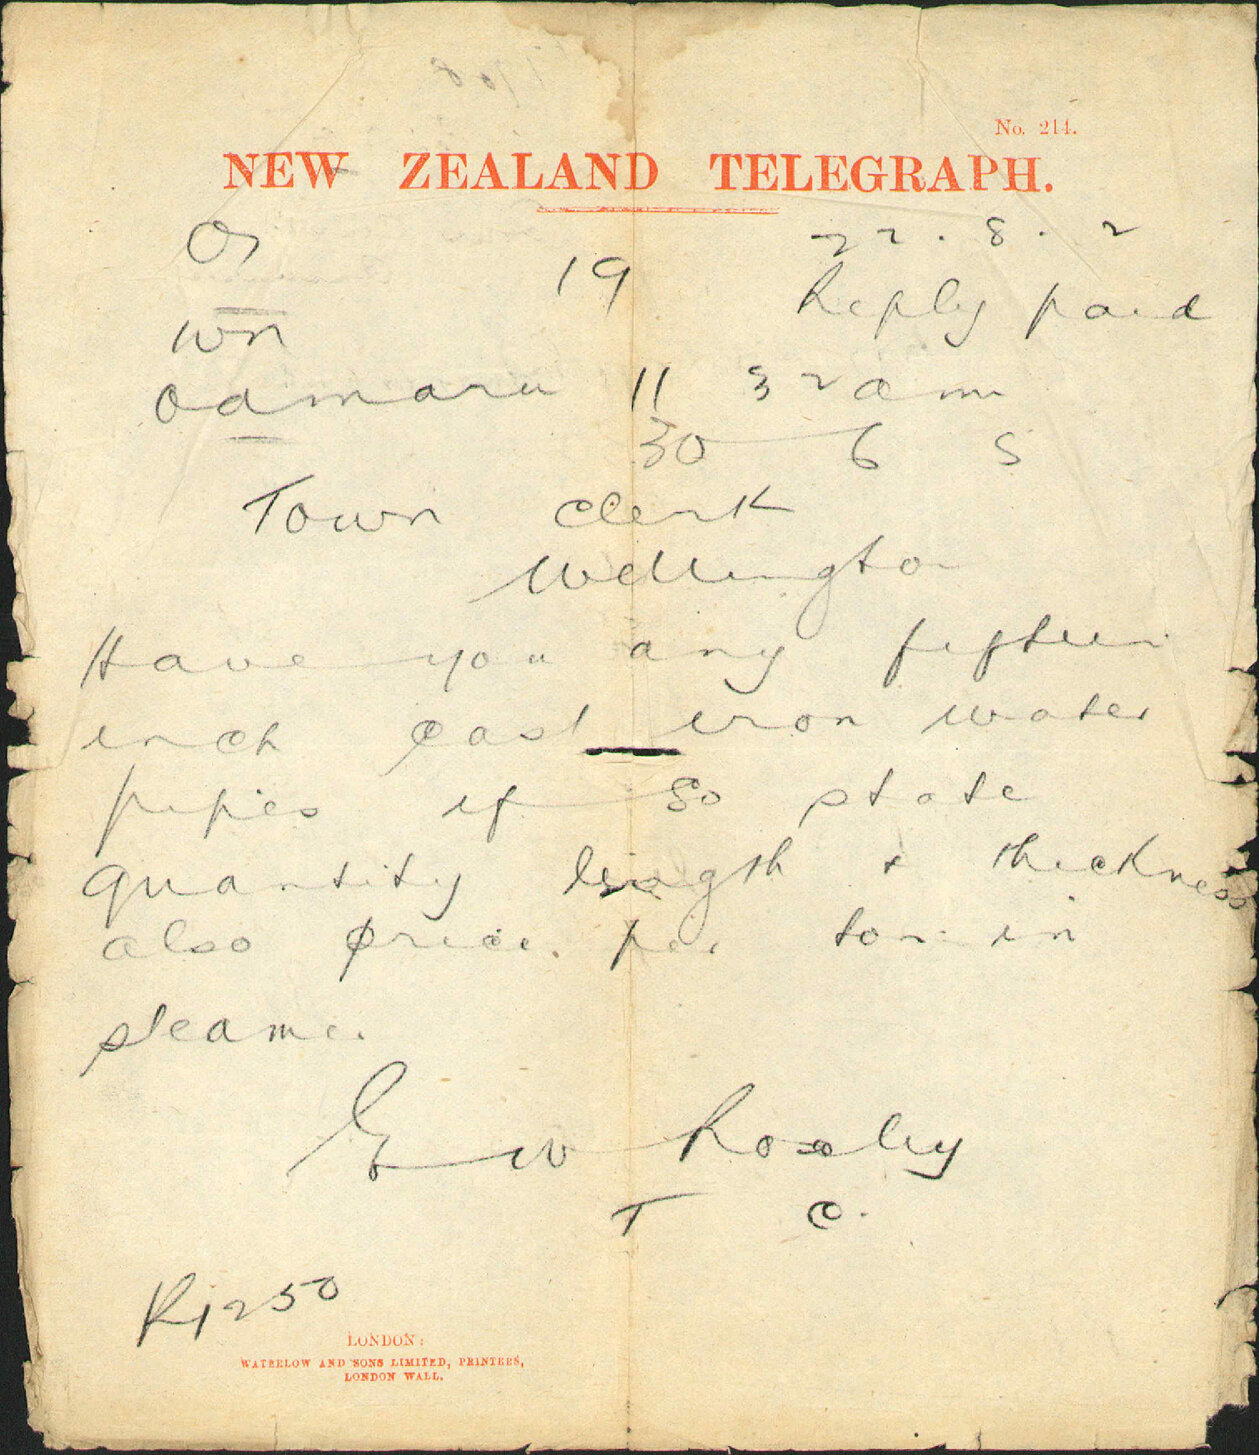 No. 214.
NEW ZEALAND TELEGRAPH.
22 . 8 . 2
19
Reply paid
Wn
Oamaru 11 32 am
30 6 5
Town Clerk
Wellington
Have you any fifteen
inch cast iron water
pipes if so state
quantity length & thickness
also price per ton in
steamer
G W Roxby
T C.
R1250
LONDON:
WATERLOW AND SONS LIMITED, PRINTERS,
LONDON WALL.